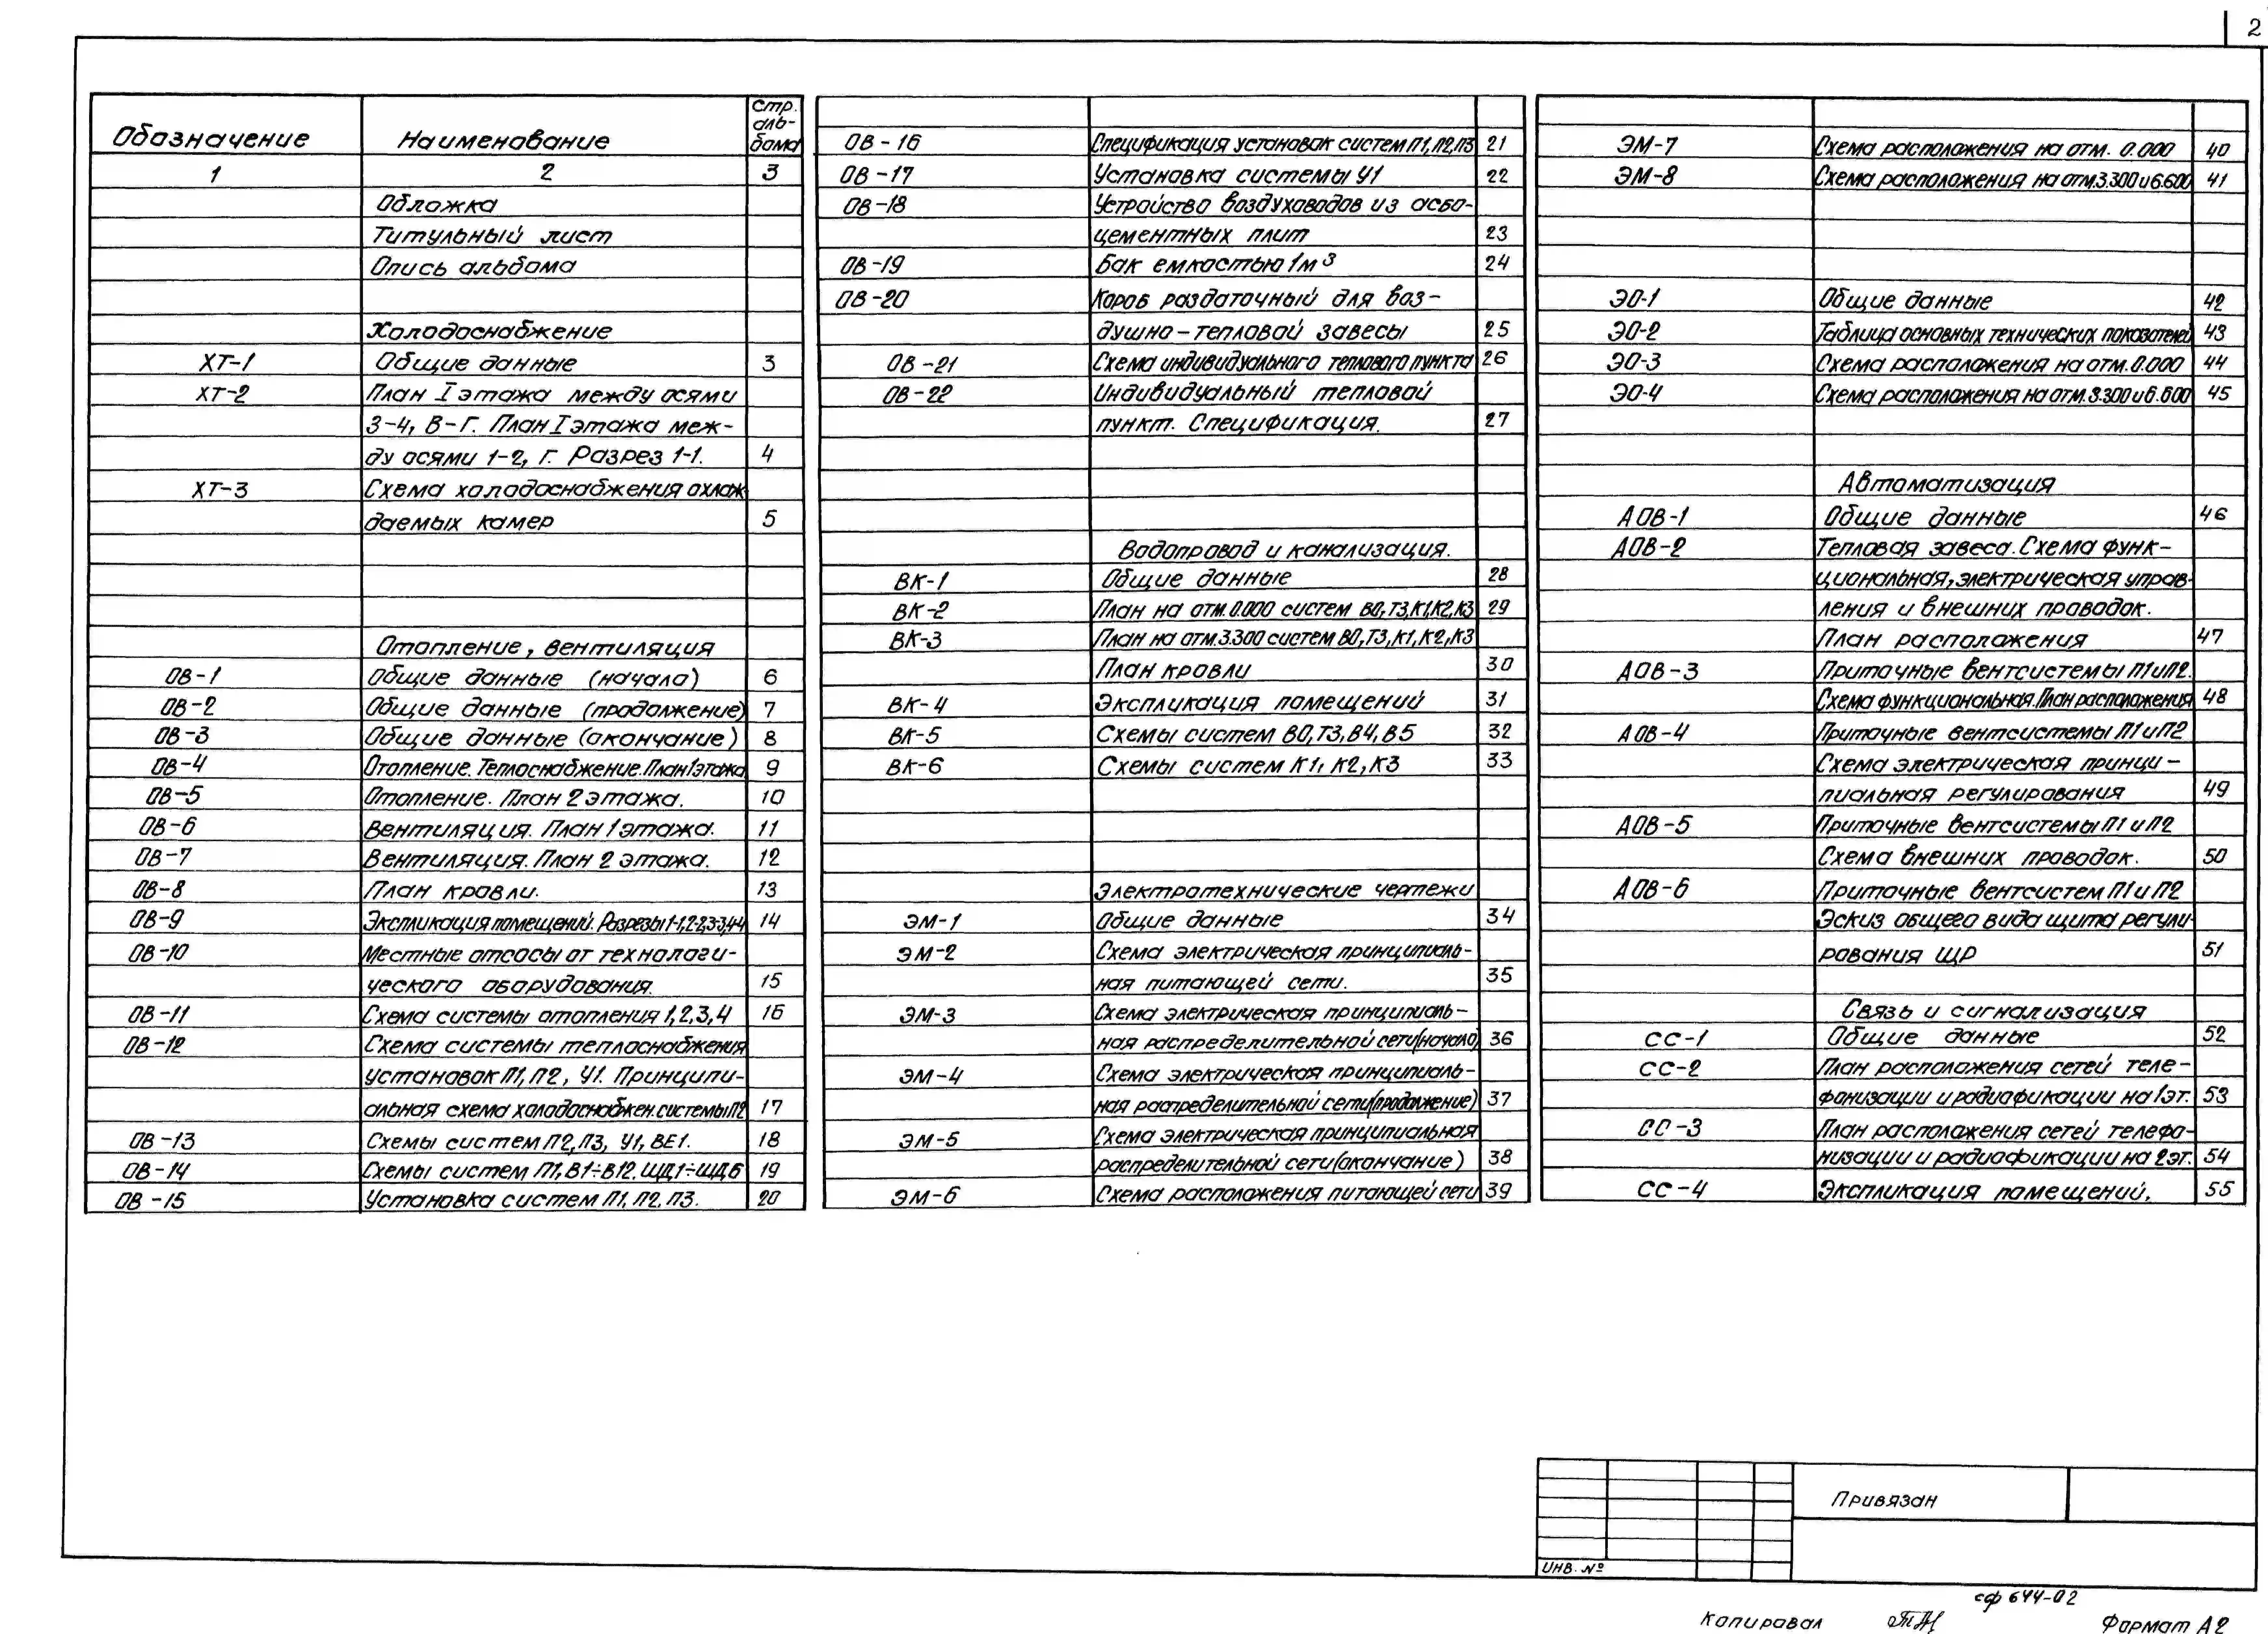 2
Обозначение Наименование Стр. альбома
1 2 3
Обложка
Титульный лист
Опись альбома
Холодоснабжение
ХТ-1 Общие данные 3
ХТ-2 План I этажа между осями
3-4, В-Г. План I этажа меж-
ду осями 1-2, Г. Разрез 1-1. 4
ХТ-3 Схема холодоснабжения охлаж-
даемых камер 5
Отопление, вентиляция
ОВ-1 Общие данные (начало) 6
ОВ-2 Общие данные (продолжение) 7
ОВ-3 Общие данные (окончание) 8
ОВ-4 Отопление. Теплоснабжение. План 1 этажа 9
ОВ-5 Отопление. План 2 этажа. 10
ОВ-6 Вентиляция. План 1 этажа. 11
ОВ-7 Вентиляция. План 2 этажа. 12
ОВ-8 План кровли. 13
ОВ-9 Экспликация помещений. Разрезы 1-1,2-2,3-3,4-4 14
ОВ-10 Местные отсосы от технологи-
ческого оборудования. 15
ОВ-11 Схема системы отопления 1,2,3,4 16
ОВ-12 Схема системы теплоснабжения
установок П1, П2, У1. Принципи-
альная схема холодоснабжен. системы П2 17
ОВ-13 Схемы систем П2, П3, У1, ВЕ1. 18
ОВ-14 Схемы систем П1, В1÷В12. ЩД1÷ЩД6 19
ОВ-15 Установка систем П1, П2, П3. 20
ОВ-16 Спецификация установок систем П1, П2, П3 21
ОВ-17 Установка системы У1 22
ОВ-18 Устройство воздуховодов из асбо-
цементных плит 23
ОВ-19 Бак емкостью 1м³ 24
ОВ-20 Короб раздаточный для воз-
душно-тепловой завесы 25
ОВ-21 Схема индивидуального теплового пункта 26
ОВ-22 Индивидуальный тепловой
пункт. Спецификация. 27
Водопровод и канализация.
ВК-1 Общие данные 28
ВК-2 План на отм. 0.000 систем В0, Т3, К1, К2, К3 29
ВК-3 План на отм. 3.300 систем В0, Т3, К1, К2, К3
План кровли 30
ВК-4 Экспликация помещений 31
ВК-5 Схемы систем В0, Т3, В4, В5 32
ВК-6 Схемы систем К1, К2, К3 33
Электротехнические чертежи
ЭМ-1 Общие данные 34
ЭМ-2 Схема электрическая принципиаль-
ная питающей сети. 35
ЭМ-3 Схема электрическая принципиаль-
ная распределительной сети (начало) 36
ЭМ-4 Схема электрическая принципиаль-
ная распределительной сети (продолжение) 37
ЭМ-5 Схема электрическая принципиальная
распределительной сети (окончание) 38
ЭМ-6 Схема расположения питающей сети 39
ЭМ-7 Схема расположения на отм. 0.000 40
ЭМ-8 Схема расположения на отм. 3.300 и 6.600 41
ЭО-1 Общие данные 42
ЭО-2 Таблица основных технических показателей 43
ЭО-3 Схема расположения на отм. 0.000 44
ЭО-4 Схема расположения на отм. 3.300 и 6.600 45
Автоматизация
АОВ-1 Общие данные 46
АОВ-2 Тепловая завеса. Схема функ-
циональная, электрическая управ-
ления и внешних проводок.
План расположения 47
АОВ-3 Приточные вентсистемы П1 и П2.
Схема функциональная. План расположения 48
АОВ-4 Приточные вентсистемы П1 и П2
Схема электрическая принци-
пиальная регулирования 49
АОВ-5 Приточные вентсистемы П1 и П2
Схема внешних проводок. 50
АОВ-6 Приточные вентсистем П1 и П2
Эскиз общего вида щита регули-
рования ЩР 51
Связь и сигнализация
СС-1 Общие данные 52
СС-2 План расположения сетей теле-
фонизации и радиофикации на 1эт. 53
СС-3 План расположения сетей телефо-
низации и радиофикации на 2эт. 54
СС-4 Экспликация помещений. 55
Привязан
Инв. №
сф 644-02
Копировал Формат А2